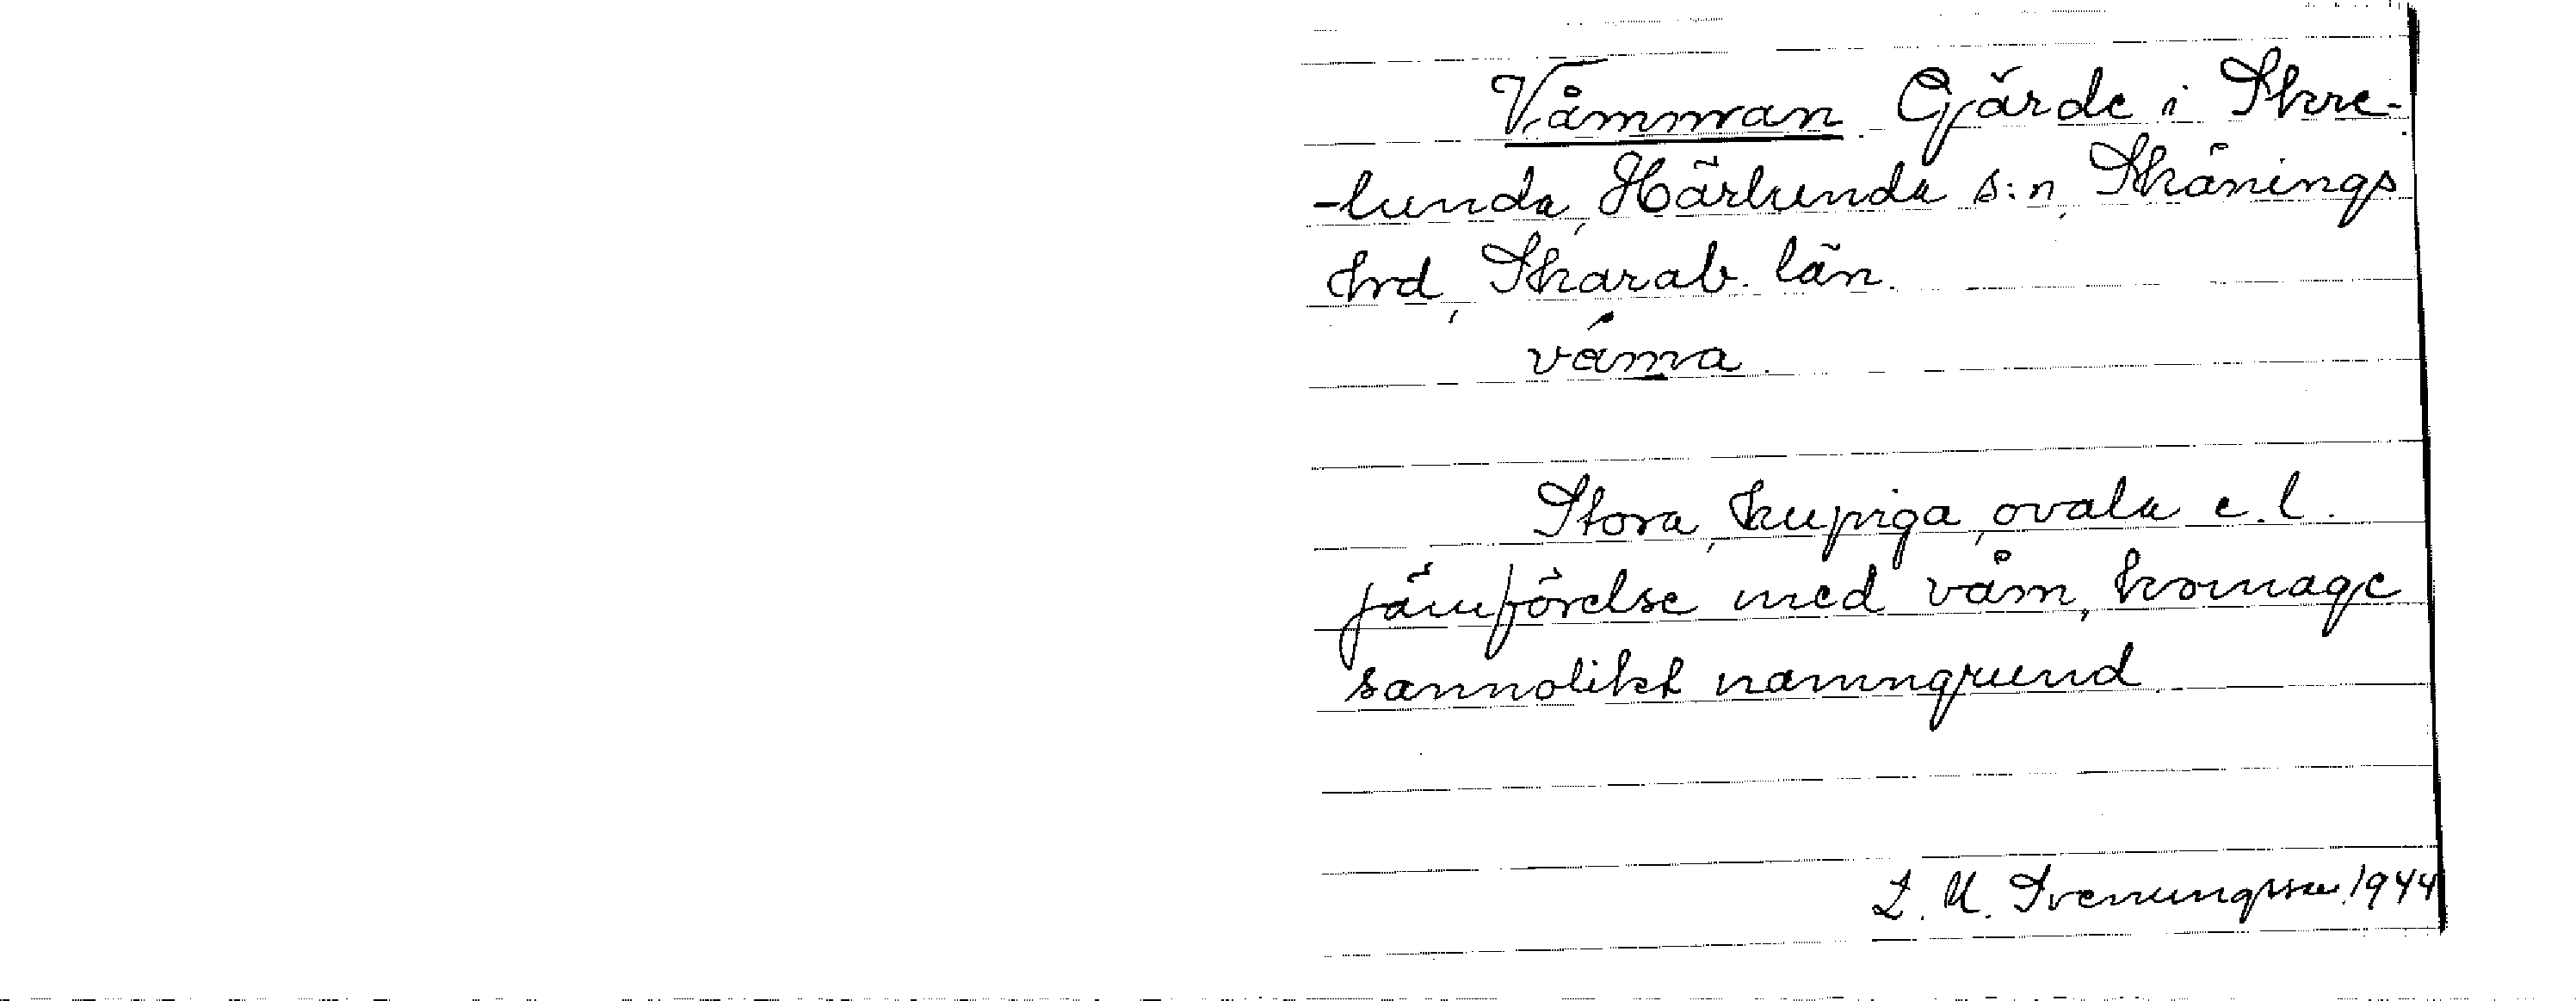 Våmman Gärde i Skre-
-lunda, Härlunda s:n, Skånings
hrd, Skarab. län.
våma.
Stora, kupiga, ovala e.l.
jämförelse med våm, komage
sannolikt namngrund
L. M. Svenungsson 1944